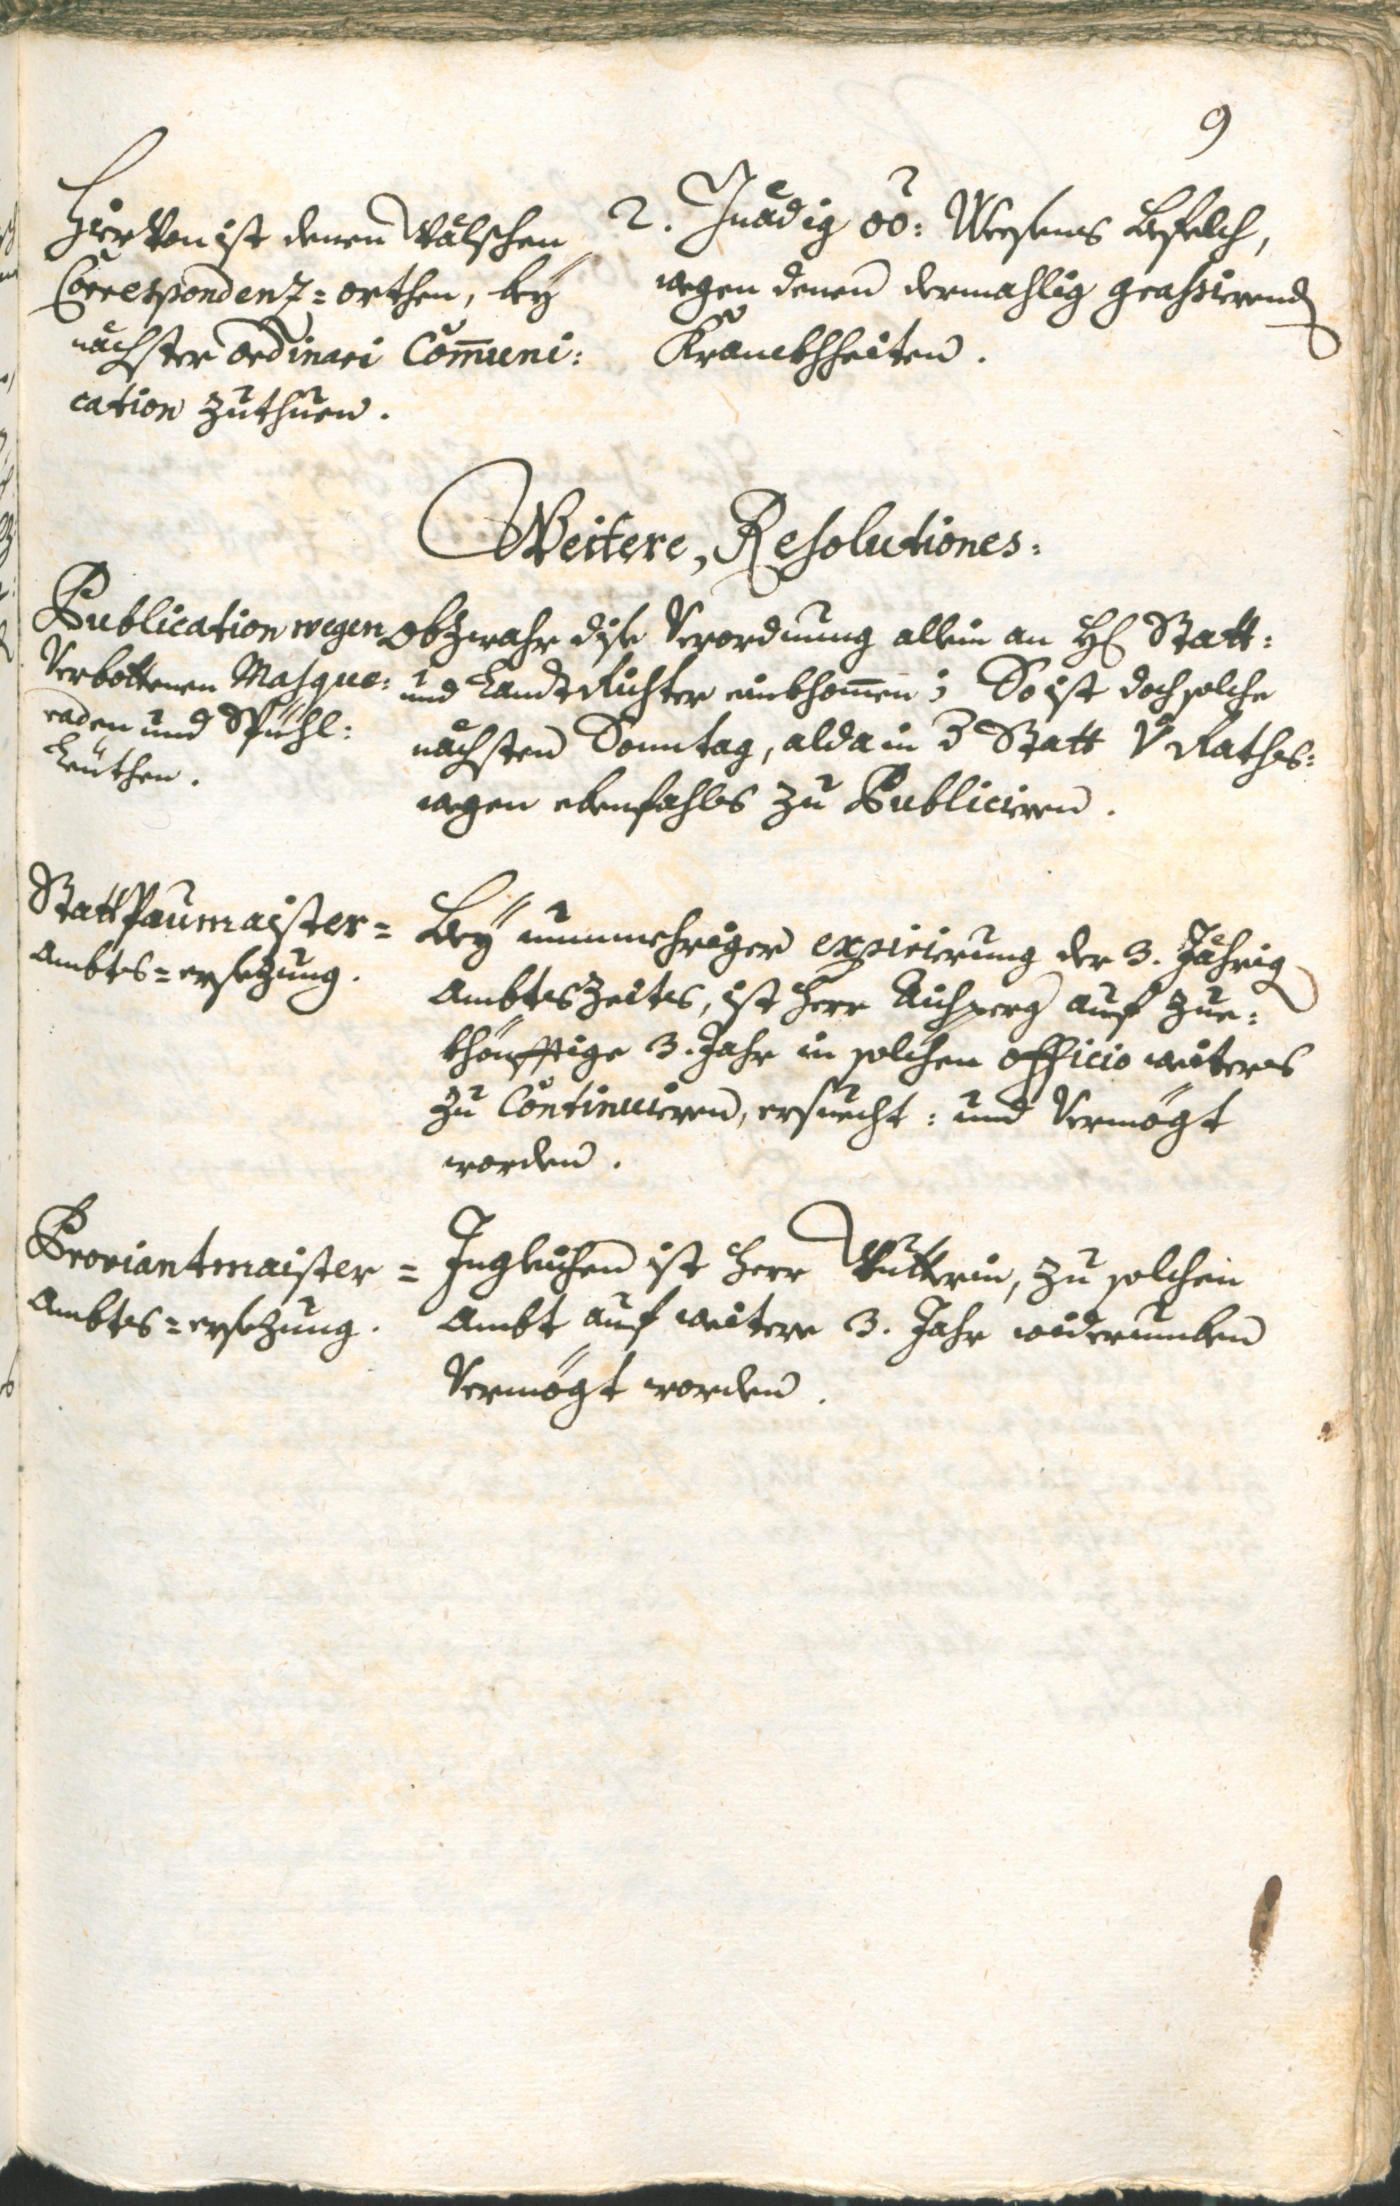 9
Hier von ist denen Wälschen
Correspondenz=orthen, beÿ
nächster ordinari Com̅uni:
cation zuthuen.
2. Gnädig oö: Weesens Befelch,
wegen denen dermahlig grassierend
Kranckhheiten.
Weitere, Resolutiones:
Publication wegen
Verbottenen Masque:
raden und Spühl:
Leüthen.
Obzwahr dise Verordnung allein an H Statt:
und Landt Richter einkhom̅en; So ist doch solche
nächsten Sonntag, alda in d Statt V Raths:
wegen ebenfahls zu Publicieren.
Statt Paumaister=
Ambts=ersezung.
Beÿ nunmehriger expirierung der 3. Jährig
Ambts Zeites, ist Herr Aichperg auf zue=
khönfftige 3. Jahr in solchen officio weiters
zu Continuieren, ersuecht: und Vermögt
worden.
Proviantmaister=
Ambts=ersezung.
Ingleichen ist Herr, zu solchen
Ambt auf weitere 3. Jahr widerumben
Vermögt worden.